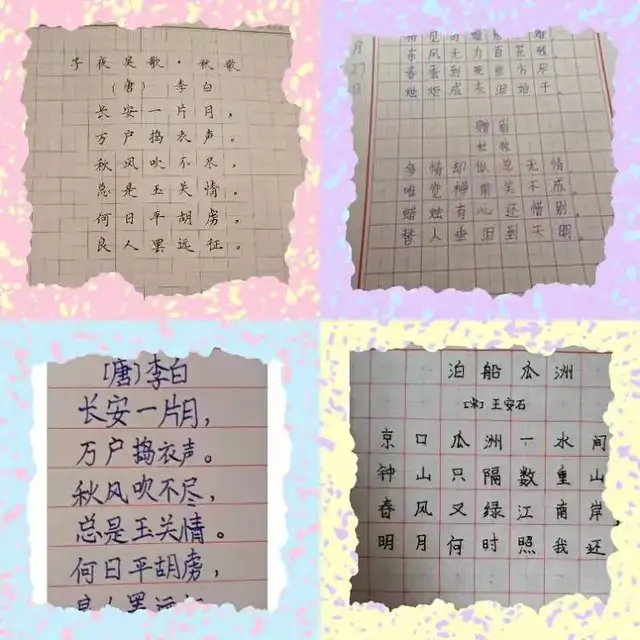 子夜吴歌·秋歌
(唐) 李白
长安一片月，
万户捣衣声。
秋风吹不尽，
总是玉关情。
何日平胡虏，
良人罢远征。
东风无力百花残
春蚕到死丝方尽
蜡炬成灰泪始干。
月
27
日
赠别
杜牧
多情却似总无情，
唯觉樽前笑不成。
蜡烛有心还惜别，
替人垂泪到天明。
[唐]李白
长安一片月，
万户捣衣声。
秋风吹不尽，
总是玉关情。
何日平胡虏，
良人罢远征
泊船瓜洲
[宋] 王安石
京口瓜洲一水间
钟山只隔数重山
春风又绿江南岸
明月何时照我还